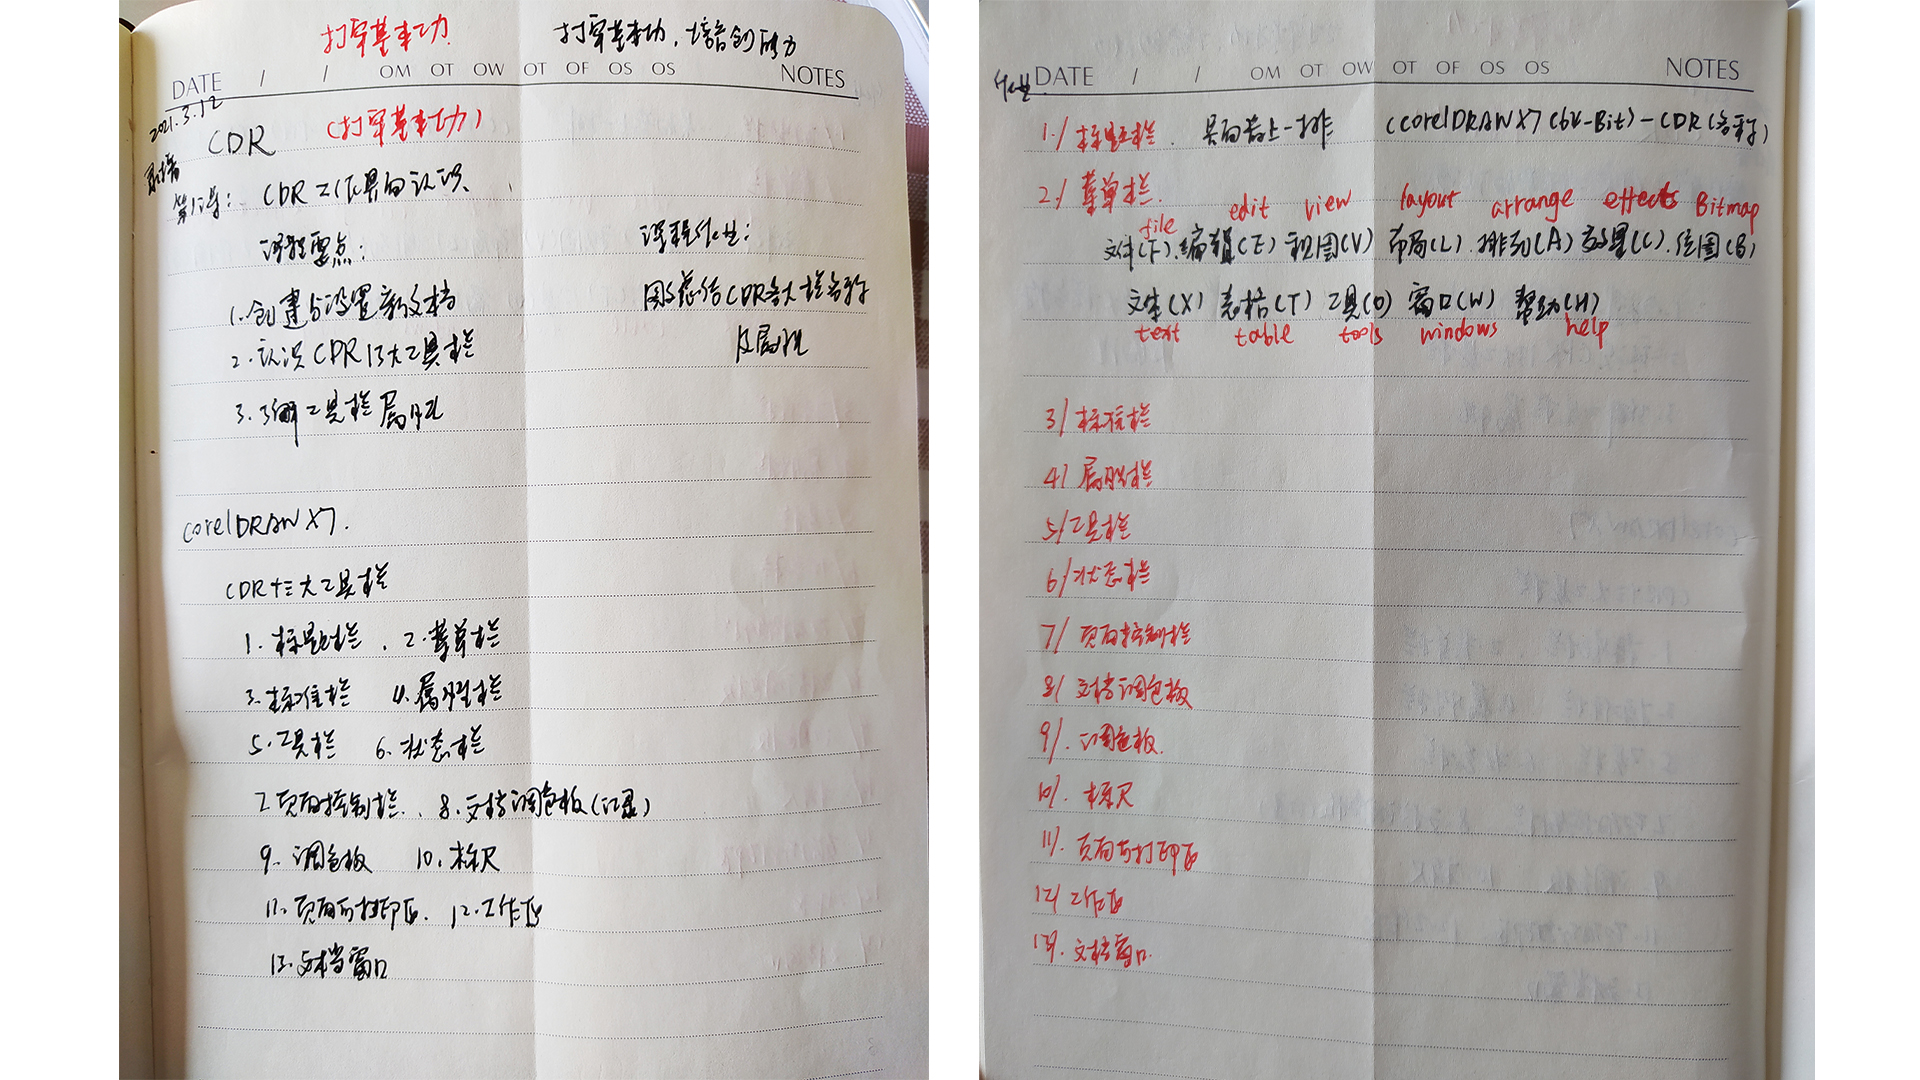 打牢基本功 打牢基本功，培养创造力
DATE / / OM OT OW OT OF OS OS NOTES
2021.3.12
CDR (打牢基本功)
第1课： CDR工作界面认识
课程要点： 课程作业：
1.创建与设置新文档 图文总结CDR各大栏名称
2.认识CDR13大工具栏 及属性
3.了解工具栏属性
CorelDRAW X7.
CDR十三大工具栏
1.标题栏 、2.菜单栏
3.标准栏 4.属性栏
5.工具栏 6.状态栏
7.页面控制栏、8.文档调色板(记录)
9.调色板 10.标尺
11.页面与打印区、12.工作区
13.文档窗口
作业 DATE / / OM OT OW OT OF OS OS NOTES
1./标题栏. 界面最上一排 (CorelDRAW X7(64-Bit)-CDR(名称)
2./菜单栏.
file edit view layout arrange effects Bitmap
文件(F).编辑(E) 视图(V) 布局(L).排列(A) 效果(C).位图(B)
文本(X) 表格(T) 工具(O) 窗口(W) 帮助(H)
text table tools windows help
3/标准栏
4/属性栏
5/工具栏
6/状态栏
7/页面控制栏
8/文档调色板
9/.调色板.
10/.标尺
11/.页面与打印区
12/工作区
13/.文档窗口.